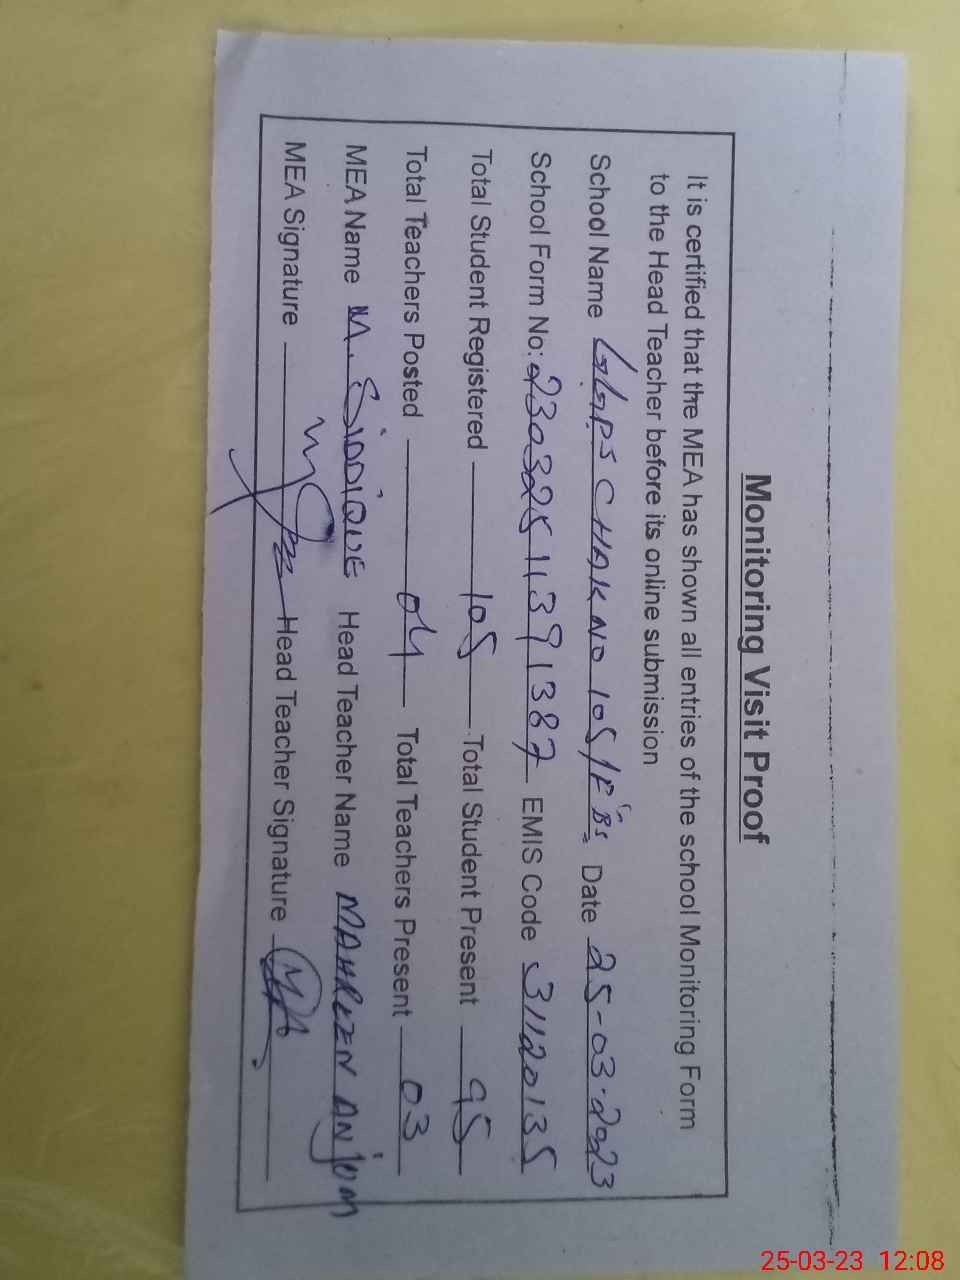 Monitoring Visit Proof
It is certified that the MEA has shown all entries of the school Monitoring Form
to the Head Teacher before its online submission
School Name GGPS CHAK NO 105/P"Bs" Date 25-03-2023
School Form No: 23032511391387 EMIS Code 31120135
Total Student Registered 105 Total Student Present 95
Total Teachers Posted 04 Total Teachers Present 03
MEA Name M. SIDDIQUE Head Teacher Name MAHREEN ANJUM
MEA Signature Head Teacher Signature
25-03-23 12:08